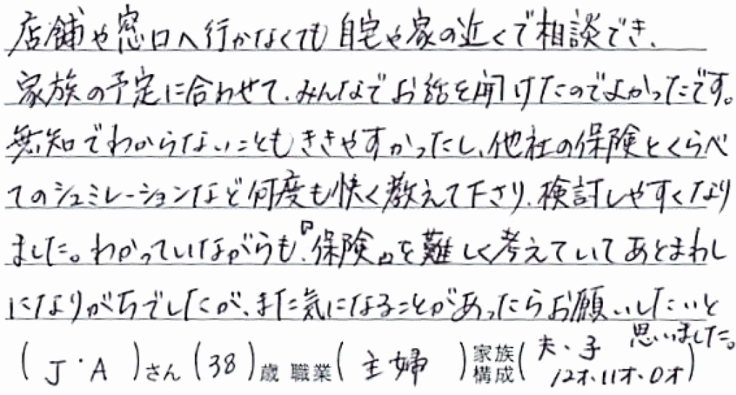 店舗や窓口へ行かなくても自宅や家の近くで相談でき、
家族の予定に合わせて、みんなでお話を聞けたのでよかったです。
無知でわからないこともききやすかったし、他社の保険とくらべ
てのシュミレーションなど何度も快く教えて下さり、検討しやすくなり
ました。わかっていながらも、『保険』を難しく考えていてあとまわし
になりがちでしたが、また気になることがあったらお願いしたいと
思いました。
(J・A)さん(38)歳 職業(主婦)家族構成(夫・子 12才・11才・0才)